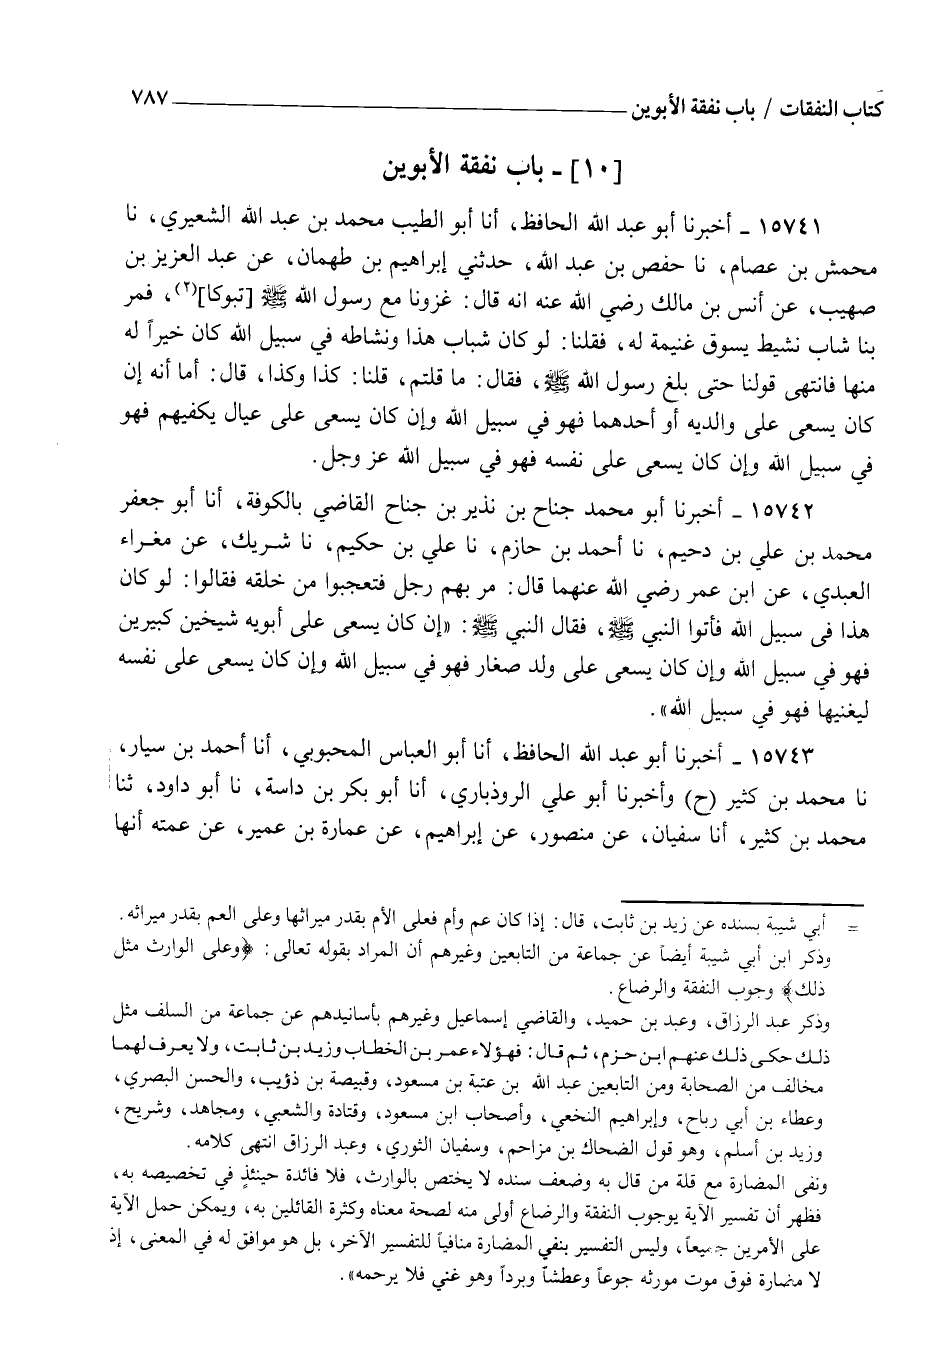 كتاب النفقات / باب نفقة الأبوين ٧٨٧
[١٠] ـ باب نفقة الأبوين
١٥٧٤١ ـ أخبرنا أبو عبد الله الحافظ، أنا أبو الطيب محمد بن عبد الله الشعيري، نا
محمش بن عصام، نا حفص بن عبد الله، حدثني إبراهيم بن طهمان، عن عبد العزيز بن
صهيب، عن أنس بن مالك رضي الله عنه انه قال: غزونا مع رسول الله ﷺ [تبوكا](٢)، فمر
بنا شاب نشيط يسوق غنيمة له، فقلنا: لو كان شباب هذا ونشاطه في سبيل الله كان خيراً له
منها فانتهى قولنا حتى بلغ رسول الله ﷺ، فقال: ما قلتم، قلنا: كذا وكذا، قال: أما أنه إن
كان يسعى على والديه أو أحدهما فهو في سبيل الله وإن كان يسعى على عيال يكفيهم فهو
في سبيل الله وإن كان يسعى على نفسه فهو في سبيل الله عز وجل.
١٥٧٤٢ ـ أخبرنا أبو محمد جناح بن نذير بن جناح القاضي بالكوفة، أنا أبو جعفر
محمد بن علي بن دحيم، نا أحمد بن حازم، نا علي بن حكيم، نا شريك، عن مغراء
العبدي، عن ابن عمر رضي الله عنهما قال: مر بهم رجل فتعجبوا من خلقه فقالوا: لو كان
هذا في سبيل الله فأتوا النبي ﷺ، فقال النبي ﷺ: «إن كان يسعى على أبويه شيخين كبيرين
فهو في سبيل الله وإن كان يسعى على ولد صغار فهو في سبيل الله وإن كان يسعى على نفسه
ليغنيها فهو في سبيل الله».
١٥٧٤٣ ـ أخبرنا أبو عبد الله الحافظ، أنا أبو العباس المحبوبي، أنا أحمد بن سيار،
نا محمد بن كثير (ح) وأخبرنا أبو علي الروذباري، أنا أبو بكر بن داسة، نا أبو داود، ثنا
محمد بن كثير، أنا سفيان، عن منصور، عن إبراهيم، عن عمارة بن عمير، عن عمته أنها
= أبي شيبة بسنده عن زيد بن ثابت، قال: إذا كان عم وأم فعلى الأم بقدر ميراثها وعلى العم بقدر ميراثه.
وذكر ابن أبي شيبة أيضاً عن جماعة من التابعين وغيرهم أن المراد بقوله تعالى: ﴿وعلى الوارث مثل
ذلك﴾ وجوب النفقة والرضاع.
وذكر عبد الرزاق، وعبد بن حميد، والقاضي إسماعيل وغيرهم بأسانيدهم عن جماعة من السلف مثل
ذلك حكى ذلك عنهم ابن حزم، ثم قال: فهؤلاء عمر بن الخطاب وزيد بن ثابت، ولا يعرف لهما
مخالف من الصحابة ومن التابعين عبد الله بن عتبة بن مسعود، وقبيصة بن ذؤيب، والحسن البصري،
وعطاء بن أبي رباح، وإبراهيم النخعي، وأصحاب ابن مسعود، وقتادة والشعبي، ومجاهد، وشريح،
وزيد بن أسلم، وهو قول الضحاك بن مزاحم، وسفيان الثوري، وعبد الرزاق انتهى كلامه.
ونفى المضارة مع قلة من قال به وضعف سنده لا يختص بالوارث، فلا فائدة حينئذٍ في تخصيصه به،
فظهر أن تفسير الآية بوجوب النفقة والرضاع أولى منه لصحة معناه وكثرة القائلين به، ويمكن حمل الآية
على الأمرين جميعاً، وليس التفسير بنفي المضارة منافياً للتفسير الآخر، بل هو موافق له في المعنى، إذ
لا مضارة فوق موت مورثه جوعاً وعطشاً وبرداً وهو غني فلا يرحمه».